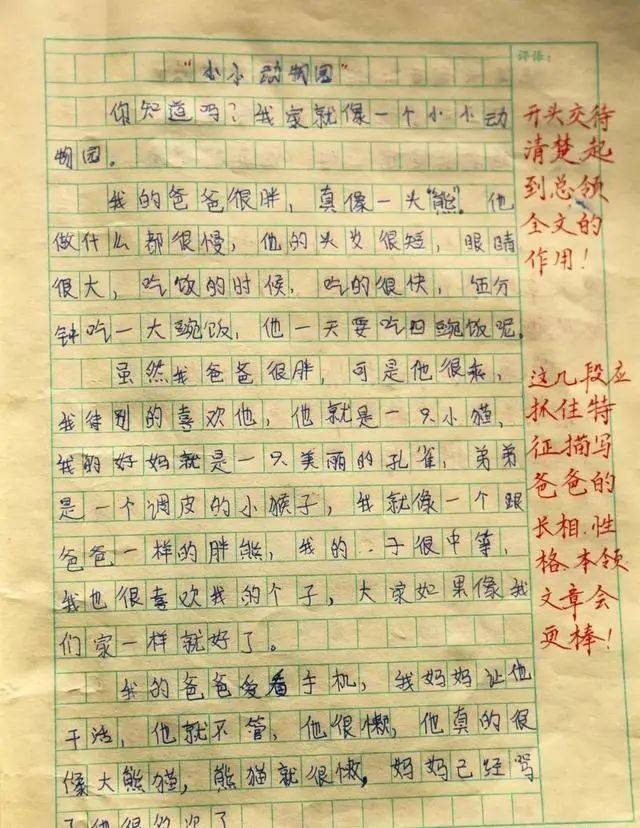 评语：
"小小动物园"
你知道吗？我家就像一个小小动
物园。
我的爸爸很胖，真像一头"熊"。他
做什么都很慢，他的头发很短，眼睛
很大，吃饭的时候，吃的很快，五分
钟吃一大豌饭，他一天要吃四豌饭呢。
虽然我爸爸很胖，可是他很
我待别的喜欢他，他就是一只小猫，
我的好妈就是一只美丽的孔雀，弟弟
是一个调皮的小猴子，我就像一个跟
爸爸一样的胖熊，我的 子很中等，
我也很喜欢我的个子，大家如果像我
们家一样就好了。
我的爸爸爱看手机，我妈妈让他
干活，他就不管，他很懒，他真的很
像大熊猫，熊猫就很懒，妈妈已经骂
了他很多次了
开头交待
清楚起
到总领
全文的
作用！
这几段应
抓住特
征描写
爸爸的
长相.性
格.本领
文章会
更棒！